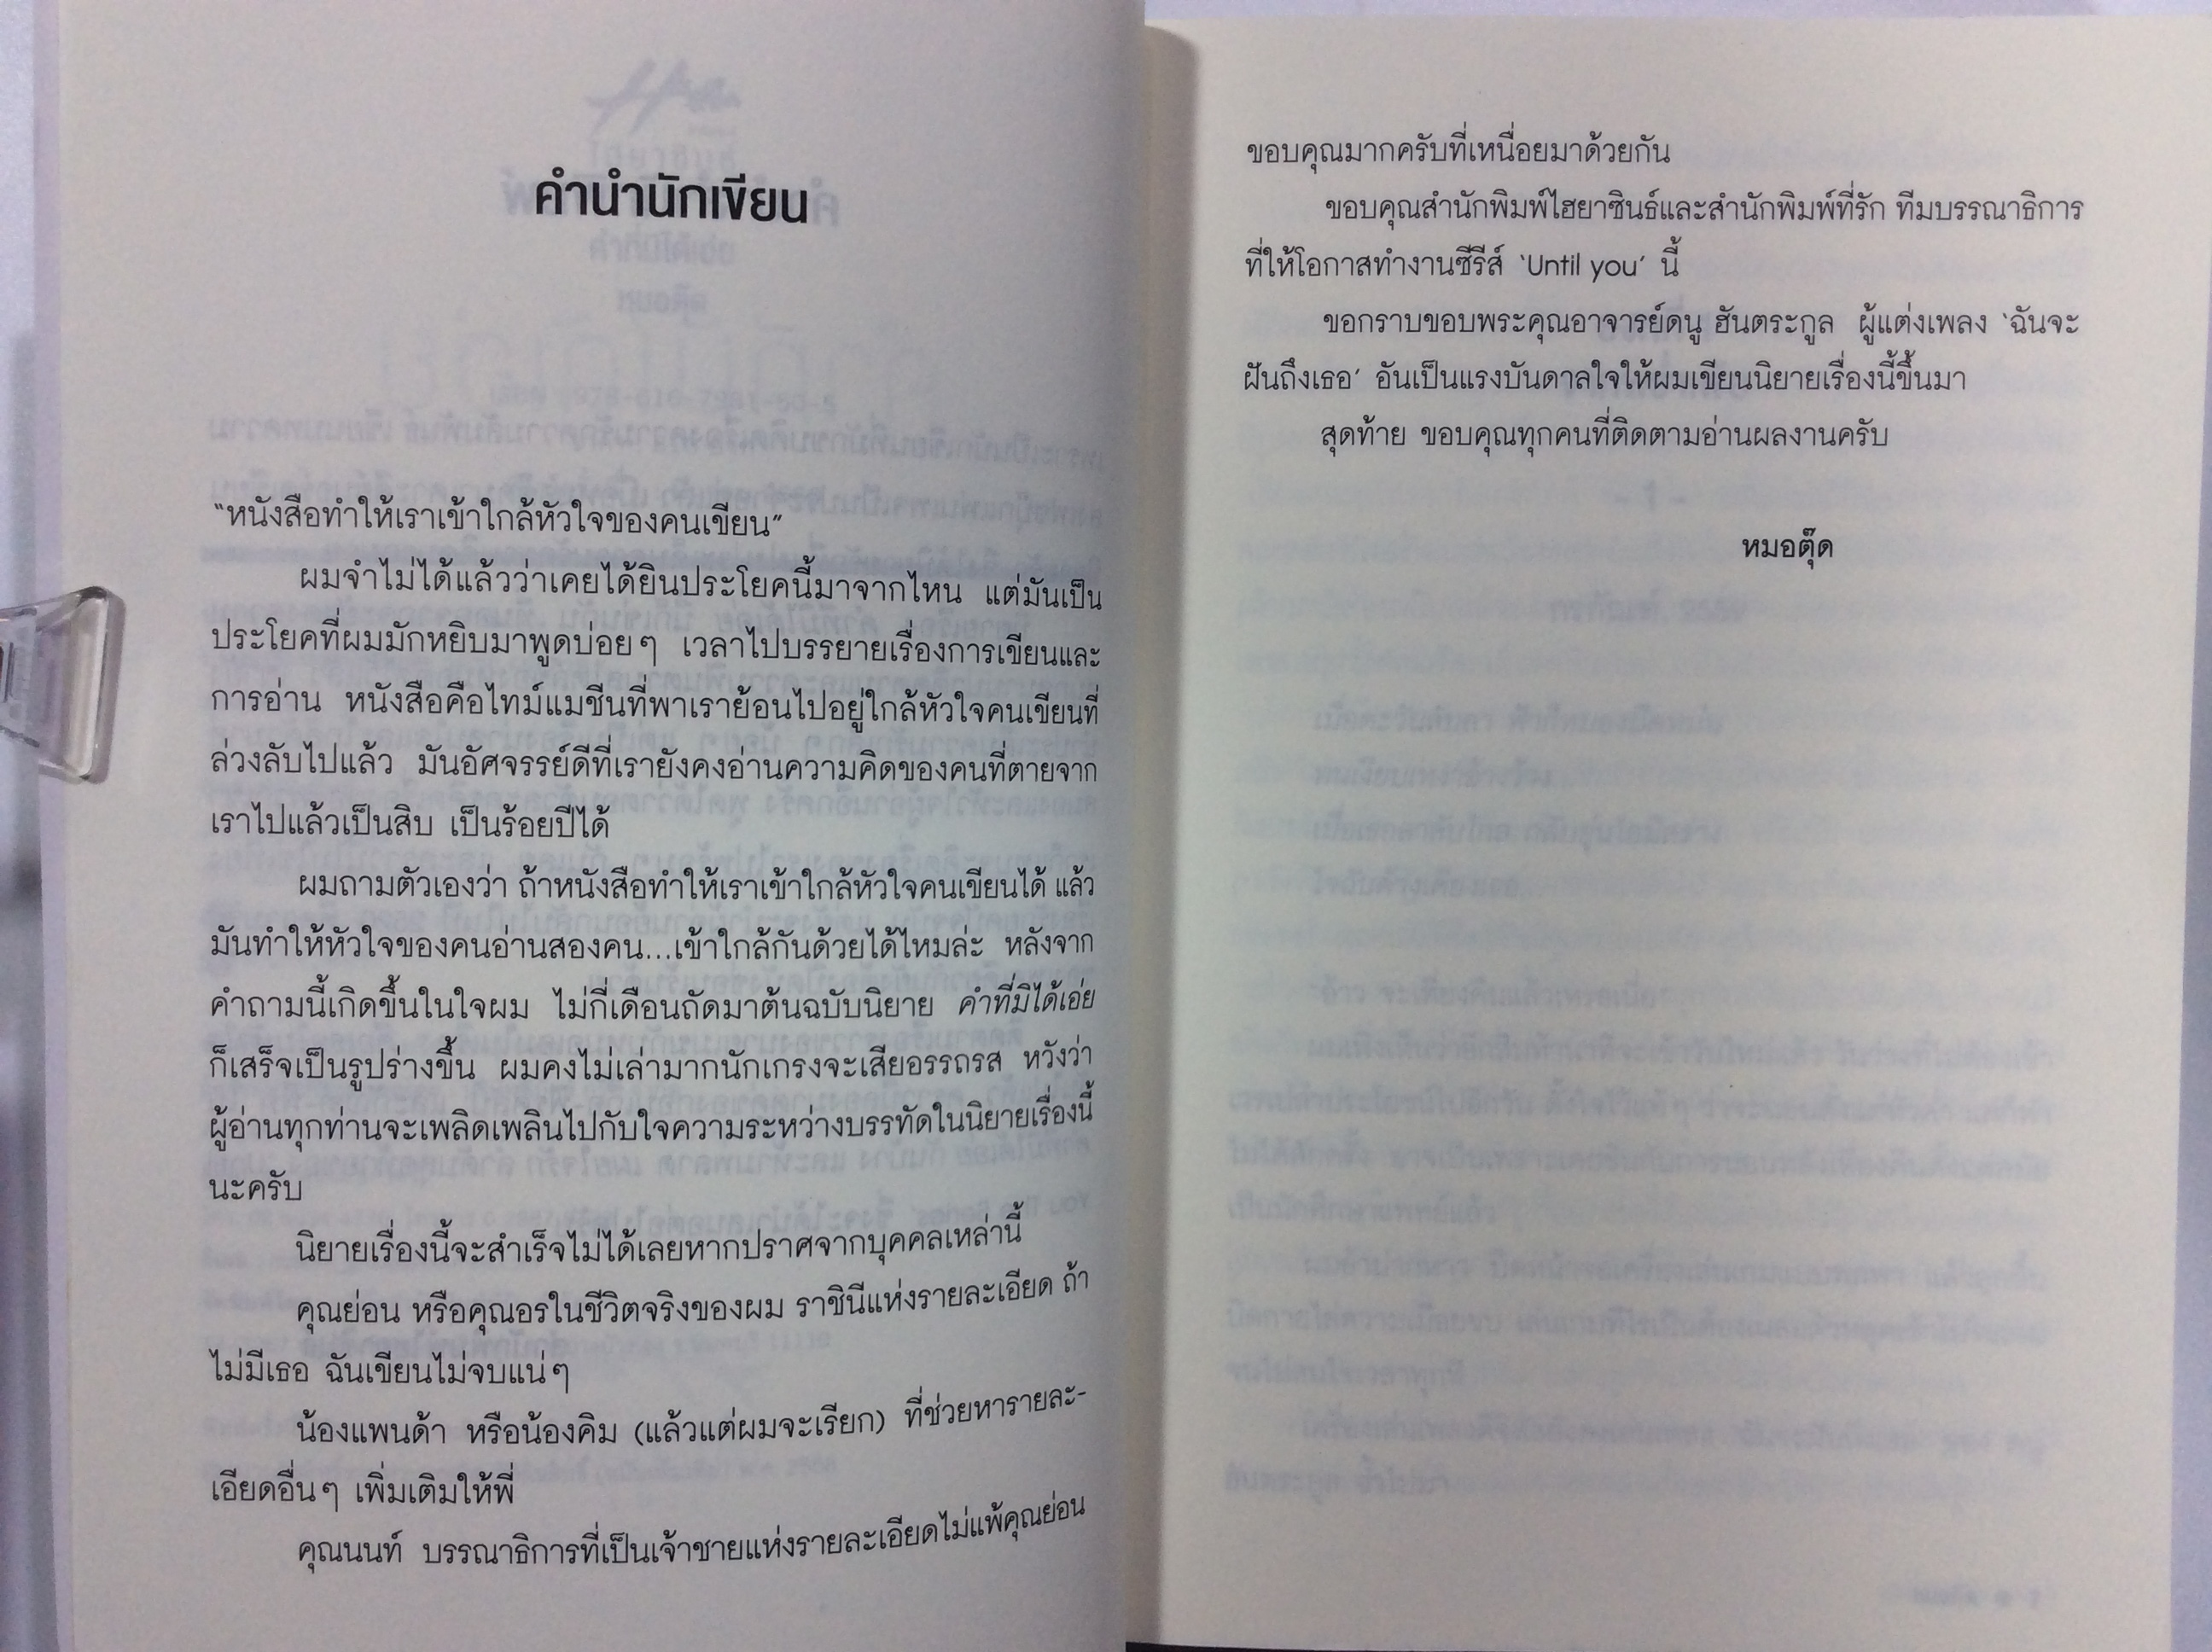 คำนำนักเขียน
“หนังสือทำให้เราเข้าใกล้หัวใจของคนเขียน”
ผมจำไม่ได้แล้วว่าเคยได้ยินประโยคนี้มาจากไหน แต่มันเป็น
ประโยคที่ผมมักหยิบมาพูดบ่อยๆ เวลาไปบรรยายเรื่องการเขียนและ
การอ่าน หนังสือคือไทม์แมชีนที่พาเราย้อนไปอยู่ใกล้หัวใจคนเขียนที่
ล่วงลับไปแล้ว มันอัศจรรย์ดีที่เรายังคงอ่านความคิดของคนที่ตายจาก
เราไปแล้วเป็นสิบ เป็นร้อยปีได้
ผมถามตัวเองว่า ถ้าหนังสือทำให้เราเข้าใกล้หัวใจคนเขียนได้ แล้ว
มันทำให้หัวใจของคนอ่านสองคน...เข้าใกล้กันด้วยได้ไหมล่ะ หลังจาก
คำถามนี้เกิดขึ้นในใจผม ไม่กี่เดือนถัดมาต้นฉบับนิยาย คำที่มิได้เอ่ย
ก็เสร็จเป็นรูปร่างขึ้น ผมคงไม่เล่ามากนักเกรงจะเสียอรรถรส หวังว่า
ผู้อ่านทุกท่านจะเพลิดเพลินไปกับใจความระหว่างบรรทัดในนิยายเรื่องนี้
นะครับ
นิยายเรื่องนี้จะสำเร็จไม่ได้เลยหากปราศจากบุคคลเหล่านี้
คุณย่อน หรือคุณอรในชีวิตจริงของผม ราชินีแห่งรายละเอียด ถ้า
ไม่มีเธอ ฉันเขียนไม่จบแน่ๆ
น้องแพนด้า หรือน้องคิม (แล้วแต่ผมจะเรียก) ที่ช่วยหารายละ-
เอียดอื่นๆ เพิ่มเติมให้พี่
คุณนนท์ บรรณาธิการที่เป็นเจ้าชายแห่งรายละเอียดไม่แพ้คุณย่อน
ขอบคุณมากครับที่เหนื่อยมาด้วยกัน
ขอบคุณสำนักพิมพ์ไฮยาซินธ์และสำนักพิมพ์ที่รัก ทีมบรรณาธิการ
ที่ให้โอกาสทำงานซีรีส์ ‘Until you’ นี้
ขอกราบขอบพระคุณอาจารย์ดนู ฮันตระกูล ผู้แต่งเพลง ‘ฉันจะ
ฝันถึงเธอ’ อันเป็นแรงบันดาลใจให้ผมเขียนนิยายเรื่องนี้ขึ้นมา
สุดท้าย ขอบคุณทุกคนที่ติดตามอ่านผลงานครับ
หมอตุ๊ด